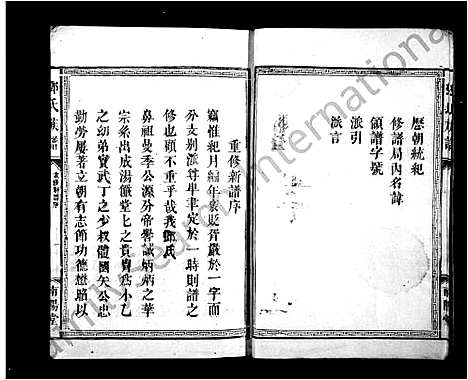 歷朝統紀
修譜局內名諱
領譜字號
派引
派言
重修新譜序
竊惟紀月編年褒貶嚴於一字而
分支別派尊卑聿定於一時則譜之
修也顧不重乎哉我鄧氏
鼻祖曼季公源分帝嚳誠炳炳之華
宗系出成湯儼堂七之貴胄為小乙
之幼弟寶武丁之少叔體國矢公忠
勤勞屢著立朝有志節功德懋昭以
鄧氏族譜
南陽堂